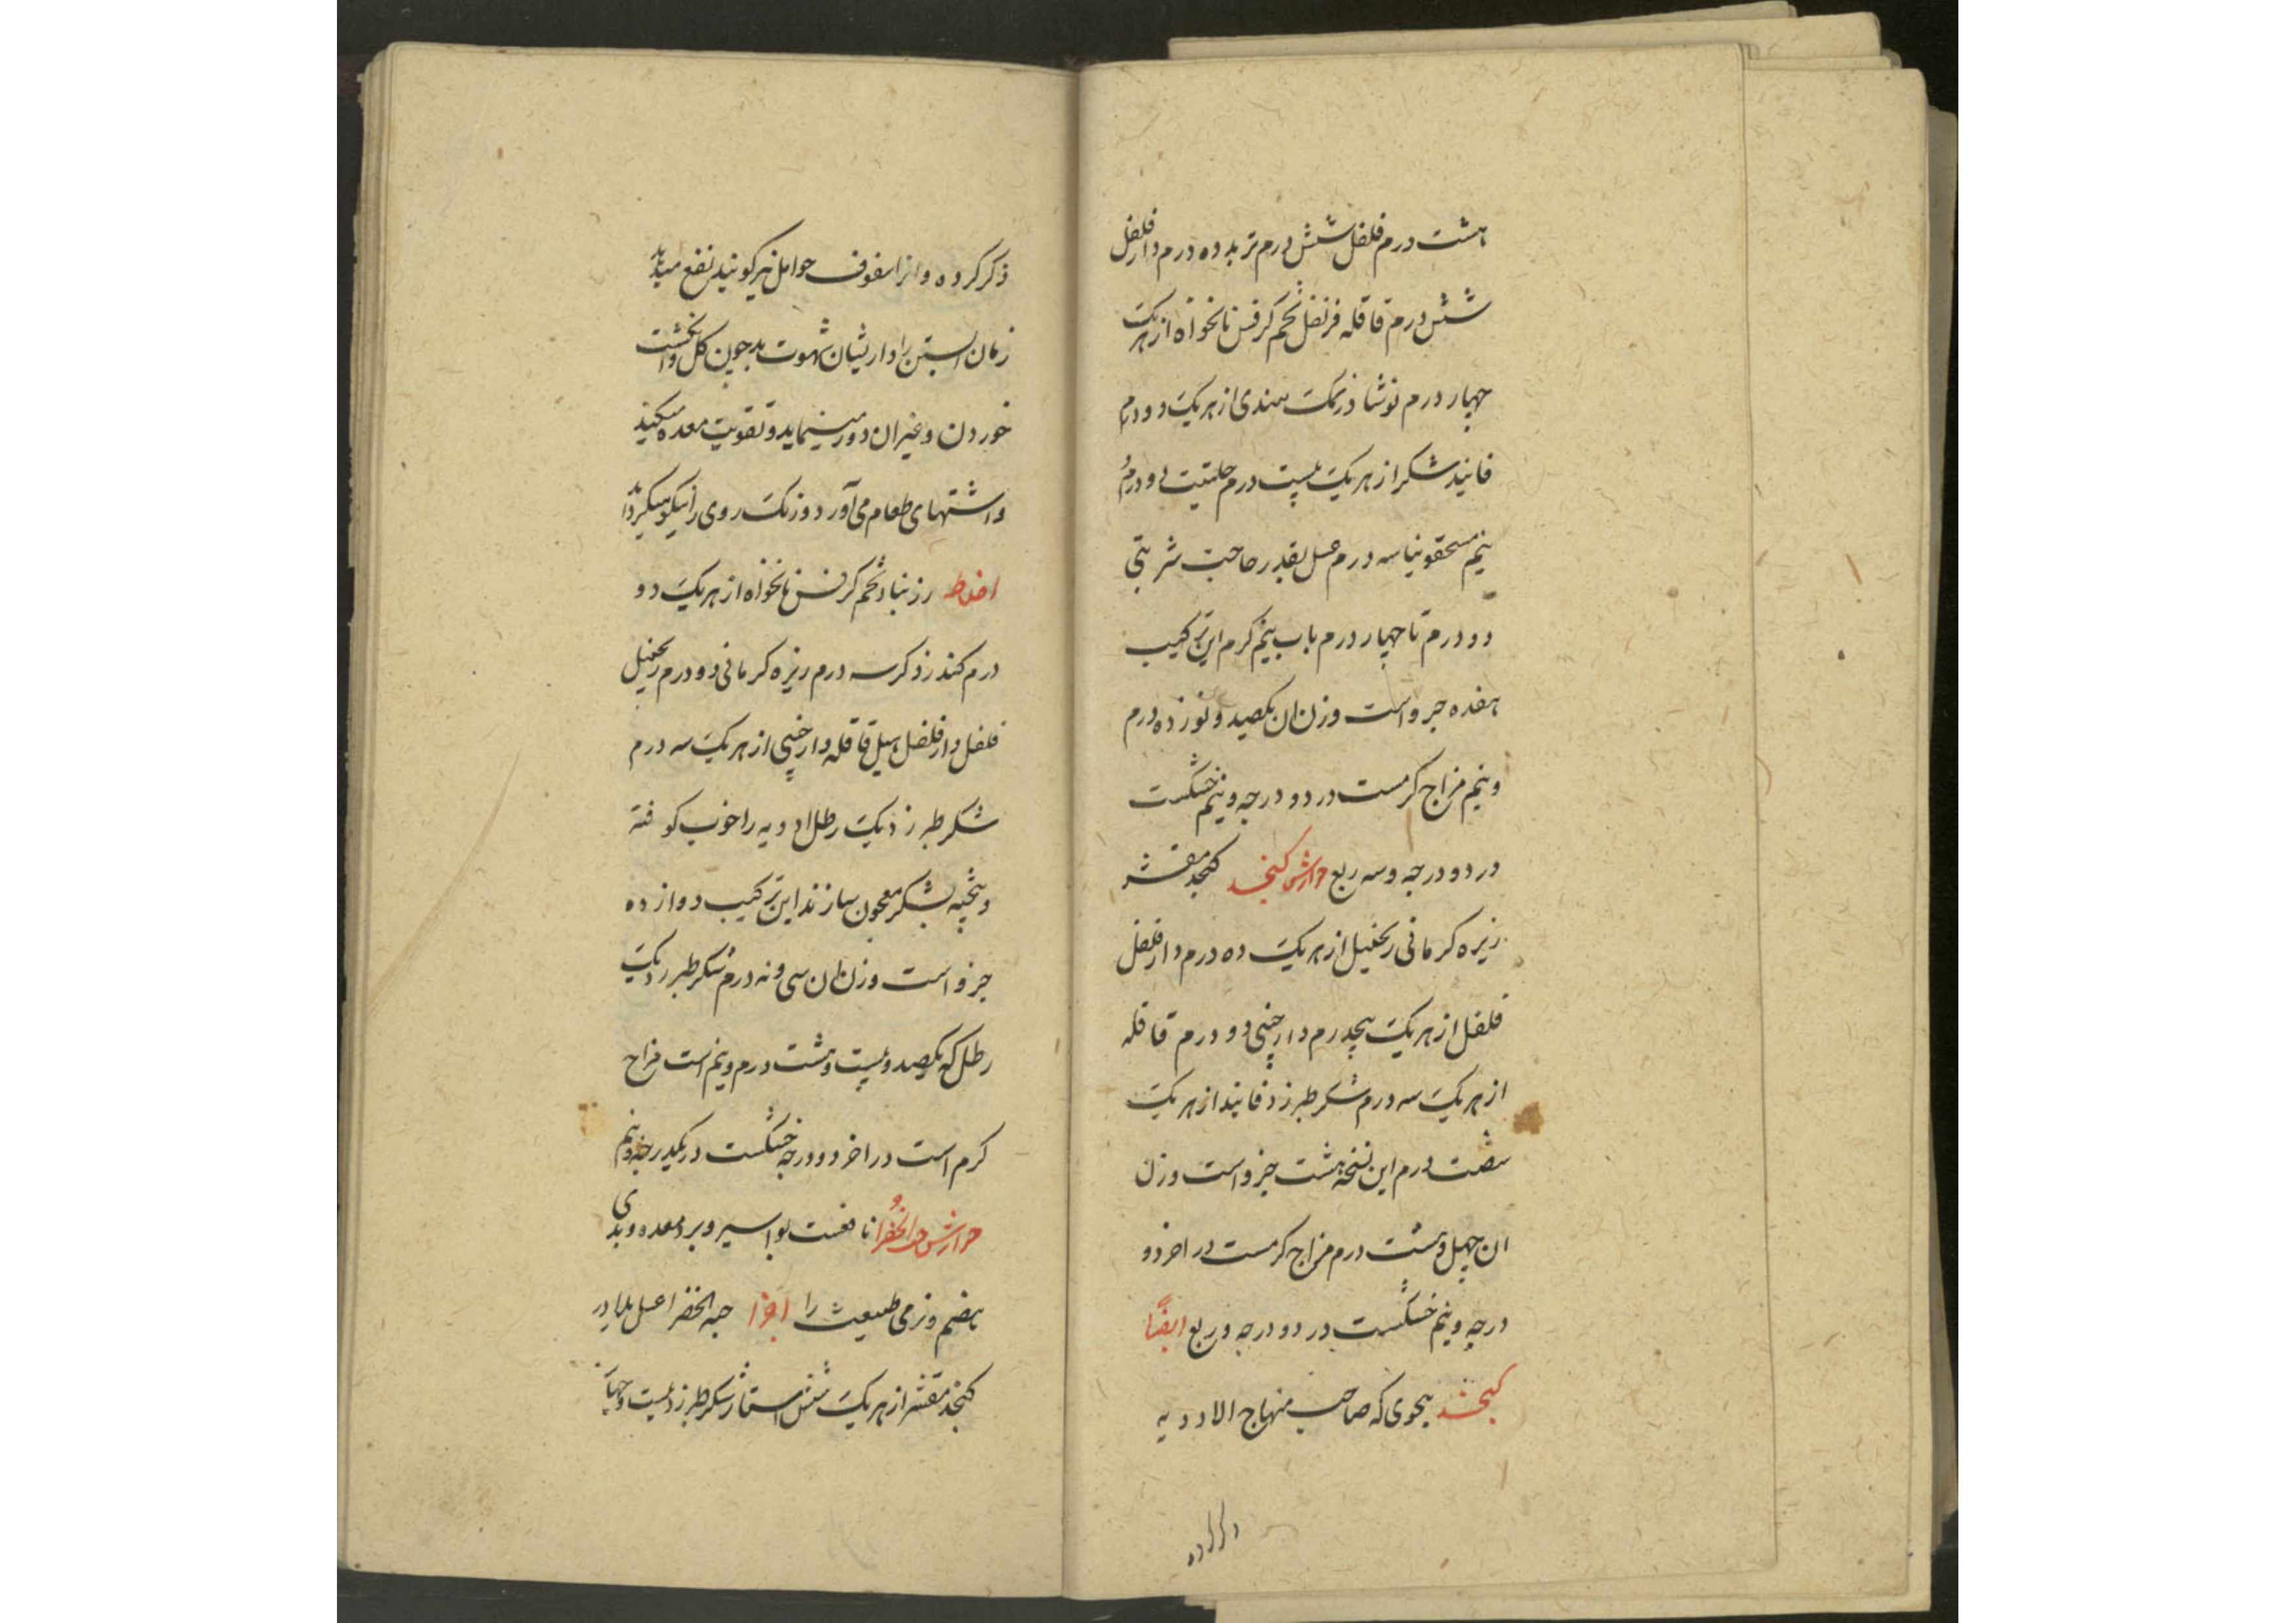 هشت درم فلفل شش درم تربد ده درم دارفلفل
شش درم قاقله قرنفل تخم کرفس نانخواه از هریک
چهار درم نوشادر نمک هندی از هریک دو درم
فانید شکر از هریک بیست درم حلتیت دو درم
نیم سقمونیا سه درم عسل بقدر حاجت شربتی
دو درم تا چهار درم باب نیم کرم این ترکیب
هفده جزو است وزن ان یکصد و نوزده درم
و نیم مزاج کرمست در دو درجه و نیم خشکست
در دو درجه و سه ربع جوارش کنجد کنجد مقشر
زیره کرمانی زنجبیل از هریک ده درم دارفلفل
فلفل از هریک پنجدرم دارچینی دو درم قاقله
از هریک سه درم شکر طبرزد فانید از هریک
شصت درم این نسخه هشت جزو است وزن
ان چهل و هشت درم مزاج کرمست در اخر دو
درجه و نیم خشکست در دو درجه و ربع ایضا
کنجد بنحوی که صاحب منهاج الادویه
ذکر کرده
ذکر کرده و انرا سفوف حوامل نیز کویند نفع میدهد
زنان ابستن را و از یشان شهوت بد چون کل و انکشت
خوردن و غیر ان دور مینماید و تقویت معده میکند
و اشتهای طعام می آورد و رنک روی را نیکو میکرداند
اخلاط زرنباد تخم کرفس نانخواه از هریک دو
درم کندر ذکر سه درم زیره کرمانی دو درم زنجبیل
فلفل دارفلفل هیل قاقله دارچینی از هریک سه درم
شکر طبرزد یک رطل ادویه را خوب کوفته
و پخته بشکر معجون سازند این ترکیب دوازده
جزو است وزن ان سی و نه درم شکر طبرزد یک
رطل که یکصد و بیست و هشت درم و نیم است مزاج
کرم است در اخر دو درجه خشکست در یکدرجه و نیم
جوارش حب الخضرا نافعست بواسیر و برد معده و بدی
هضم و نرمی طبیعت را اجزا حبه الخضرا عسل بلادر
کنجد مقشر از هریک شش استار شکر طبرزد بیست و چهار